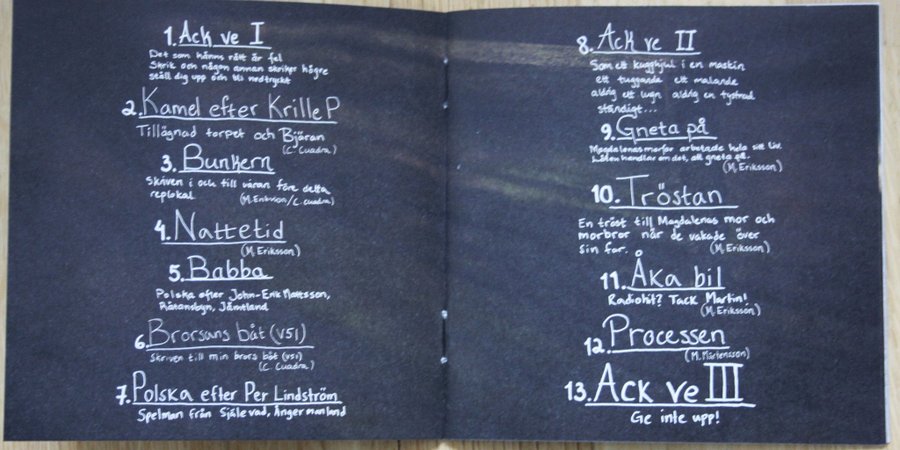 1. Ack ve I
Det som känns rätt är fel
Skrik och någon annan skriker högre
ställ dig upp och bli nedtryckt
2. Kamel efter Krille P
Tillägnad torpet och Bjäran
(C. Cuadra)
3. Bunkern
Skriven i och till våran före detta
replokal
(M. Eriksson/C. Cuadra)
4. Nattetid
(M. Eriksson)
5. Babba
Polska efter John-Erik Mattsson,
Rätansbyn, Jämtland
6. Brorsans båt (V51)
Skriven till min brors båt (V51)
(C. Cuadra)
7. Polska efter Per Lindström
Spelman från Själevad, Ångermanland
8. Ack ve II
Som ett kugghjul i en maskin
ett tuggande ett malande
aldrig ett lugn aldrig en tystnad
ständigt...
9. Gneta på
Magdalenas morfar arbetade hela sitt liv.
Låten handlar om det, att gneta på.
(M. Eriksson)
10. Tröstan
En tröst till Magdalenas mor och
morbror när de vakade över
sin far.
(M. Eriksson)
11. Åka bil
Radiohit? Tack Martin!
(M. Eriksson)
12. Processen
(M. Mårtensson)
13. Ack ve III
Ge inte upp!